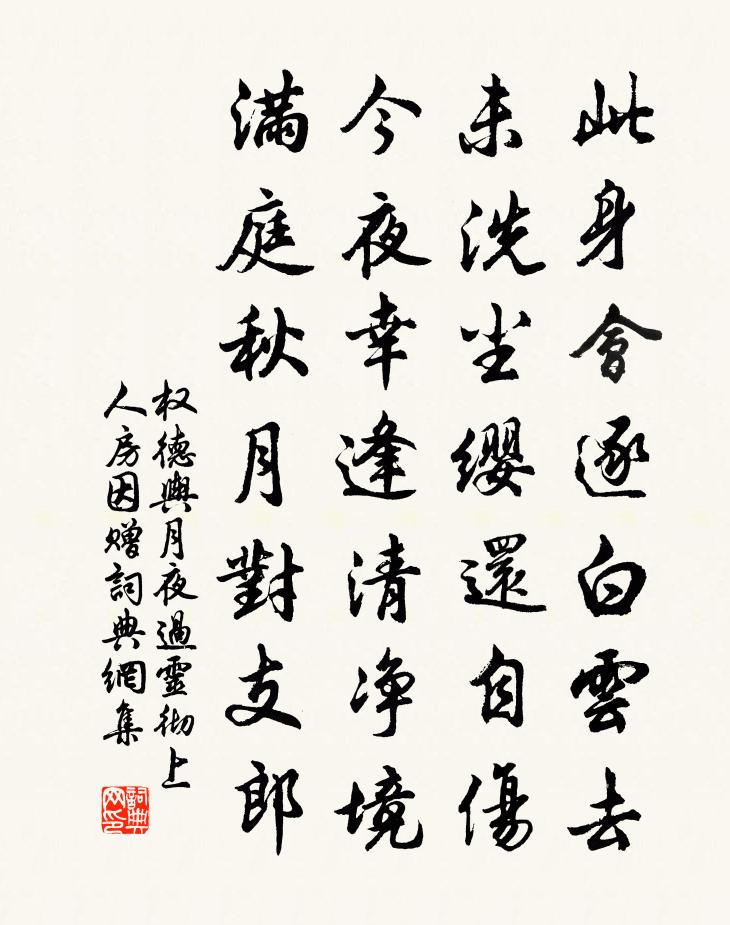 此身會逐白雲去
未洗尘缨還自傷
今夜幸逢清净境
滿庭秋月對支郎
权德輿月夜過靈彻上
人房因赠詞典網集
詞典网印